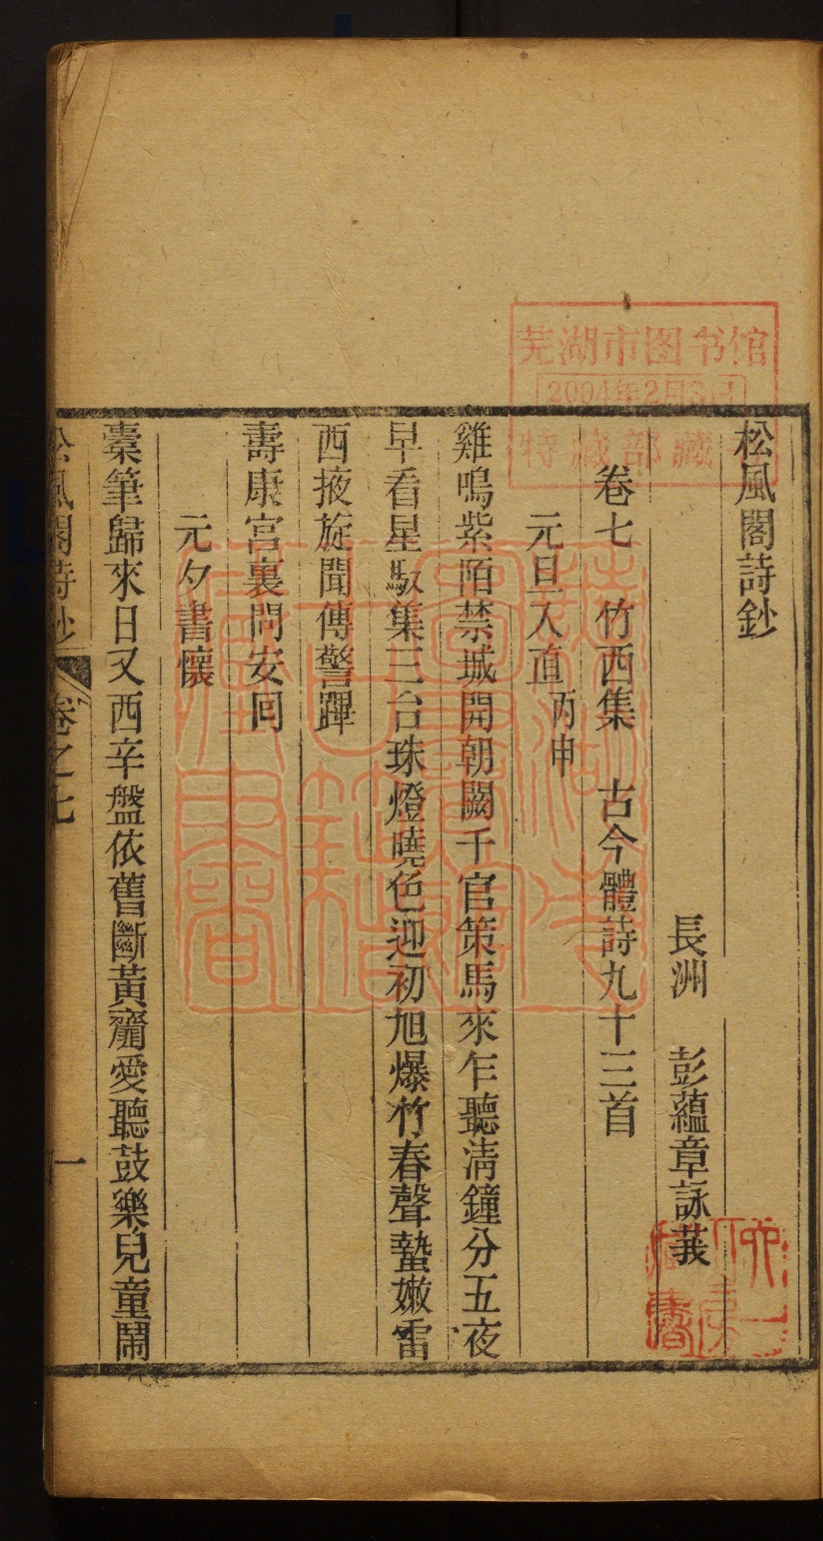 松風閣詩鈔
長洲 彭蘊章詠莪
卷七 竹西集 古今體詩九十三首
元旦入直丙申
雞鳴紫陌禁城開朝闕千官策馬來乍聽淸鐘分五夜
早看星馭集三台珠燈曉色迎初旭爆竹春聲蟄嫩雷
西掖旋聞傳警蹕
壽康宮裏問安回
元夕書懷
橐筆歸來日又西辛盤依舊斷黃虀愛聽鼓樂兒童鬧
松風閣詩鈔 卷之七 一
芜湖市图书馆
2004年2月3日
特藏部藏